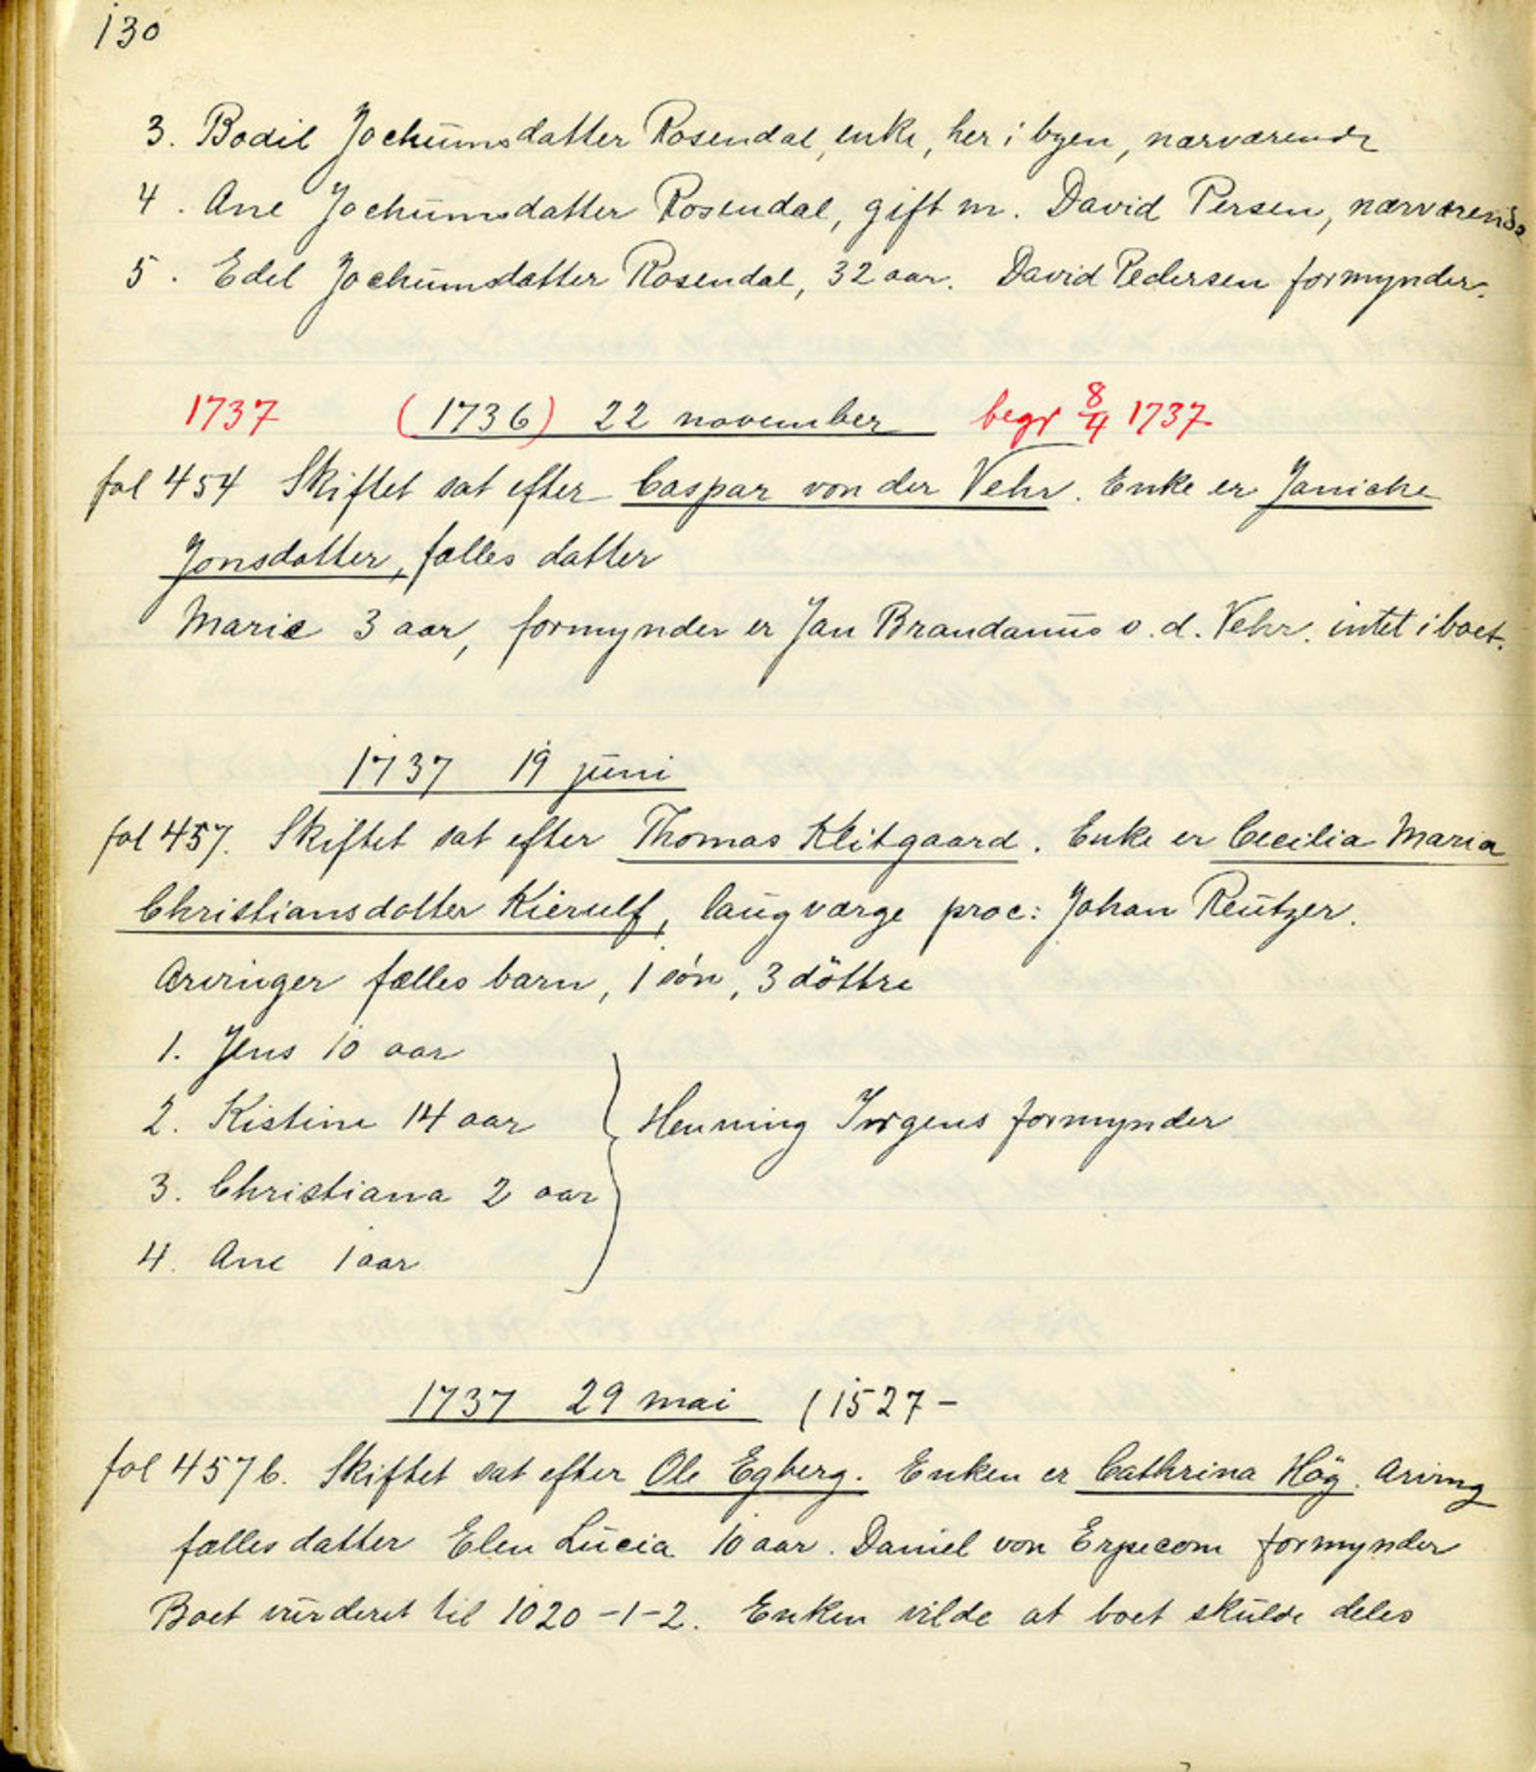 130
3. Bodil Jochumsdatter Rosendal, enke, her i byen, nærværende
4. Ane Jochumsdatter Rosendal, gift m. David Persen, nærværende
5. Edel Jochumsdatter Rosendal, 32 aar. David Pedersen formynder.
1737 (1736) 22 november begr 8/4 1737
fol 454 Skiftet sat efter Caspar von der Vehr. Enke er Janicke
Jonsdatter, fælles datter
Marie 3 aar, formynder er Jan Brandanus v. d. Vehr. intet i boet.
1737 19 juni
fol 457. Skiftet sat efter Thomas Klitgaard. Enke er Cecilia Maria
Christiansdatter Kierulf, laugværge proc: Johan Reutzer.
Arvinger fælles barn, 1 sön, 3 döttre
1. Jens 10 aar
2. Kistine 14 aar } Henning Irgens formynder
3. Christiana 2 aar
4. Ane 1 aar
1737 29 mai (1527 -
fol 457 b. Skiftet sat efter Ole Egberg. Enken er Cathrina Hög. Arving
fælles datter Elen Lucia 10 aar. Daniel von Erpecom formynder
Boet vurderet til 1020-1-2. Enken vilde at boet skulde deles